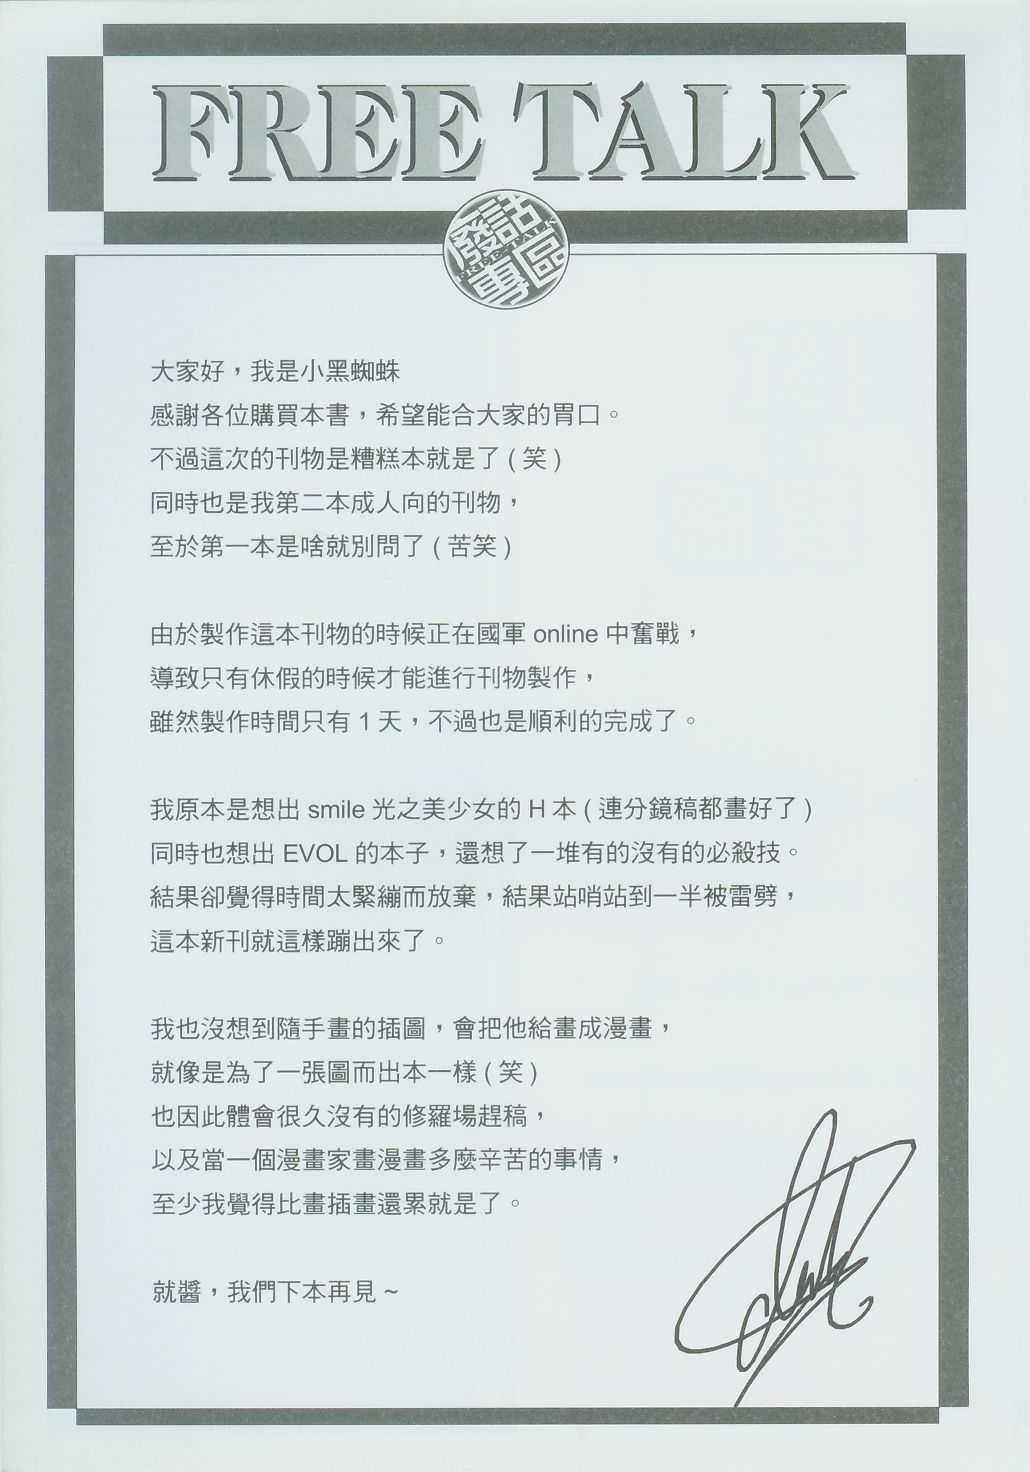 FREE TALK
廢話
FREE TALK
專區
大家好，我是小黑蜘蛛
感謝各位購買本書，希望能合大家的胃口。
不過這次的刊物是糟糕本就是了 ( 笑 )
同時也是我第二本成人向的刊物，
至於第一本是啥就別問了 ( 苦笑 )
由於製作這本刊物的時候正在國軍 online 中奮戰，
導致只有休假的時候才能進行刊物製作，
雖然製作時間只有 1 天，不過也是順利的完成了。
我原本是想出 smile 光之美少女的 H 本 ( 連分鏡稿都畫好了 )
同時也想出 EVOL 的本子，還想了一堆有的沒有的必殺技。
結果卻覺得時間太緊繃而放棄，結果站哨站到一半被雷劈，
這本新刊就這樣蹦出來了。
我也沒想到隨手畫的插圖，會把他給畫成漫畫，
就像是為了一張圖而出本一樣 ( 笑 )
也因此體會很久沒有的修羅場趕稿，
以及當一個漫畫家畫漫畫多麼辛苦的事情，
至少我覺得比畫插畫還累就是了。
就醬，我們下本再見 ~